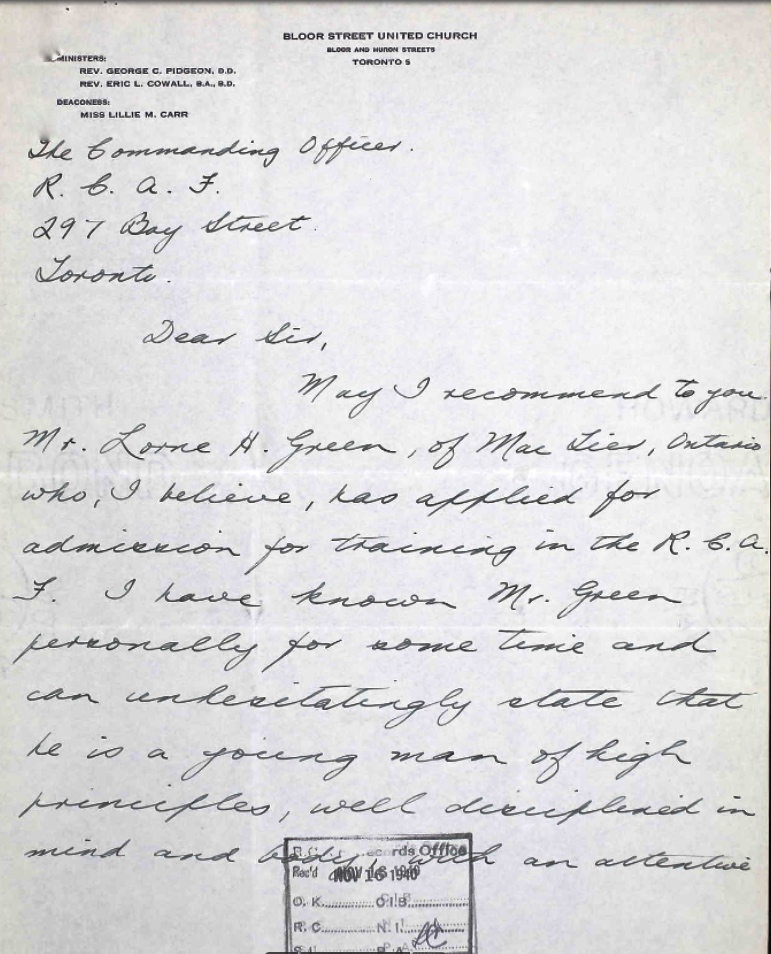 BLOOR STREET UNITED CHURCH
BLOOR AND HURON STREETS
TORONTO 5
MINISTERS:
REV. GEORGE C. PIDGEON, D.D.
REV. ERIC L. COWALL, B.A., B.D.
DEACONESS:
MISS LILLIE M. CARR
The Commanding Officer.
R. C. A. F.
297 Bay Street.
Toronto.
Dear Sir,
May I recommend to you
Mr. Lorne H. Green, of Mac Tier, Ontario
who, I believe, has applied for
admission for training in the R. C. A.
F. I have known Mr. Green
personally for some time and
can unhesitatingly state that
he is a young man of high
principles, well disciplined in
mind and body, with an attentive
Records Office
Rec'd NOV 16 1940
O. K. O.I.B.
R. C. N. I.